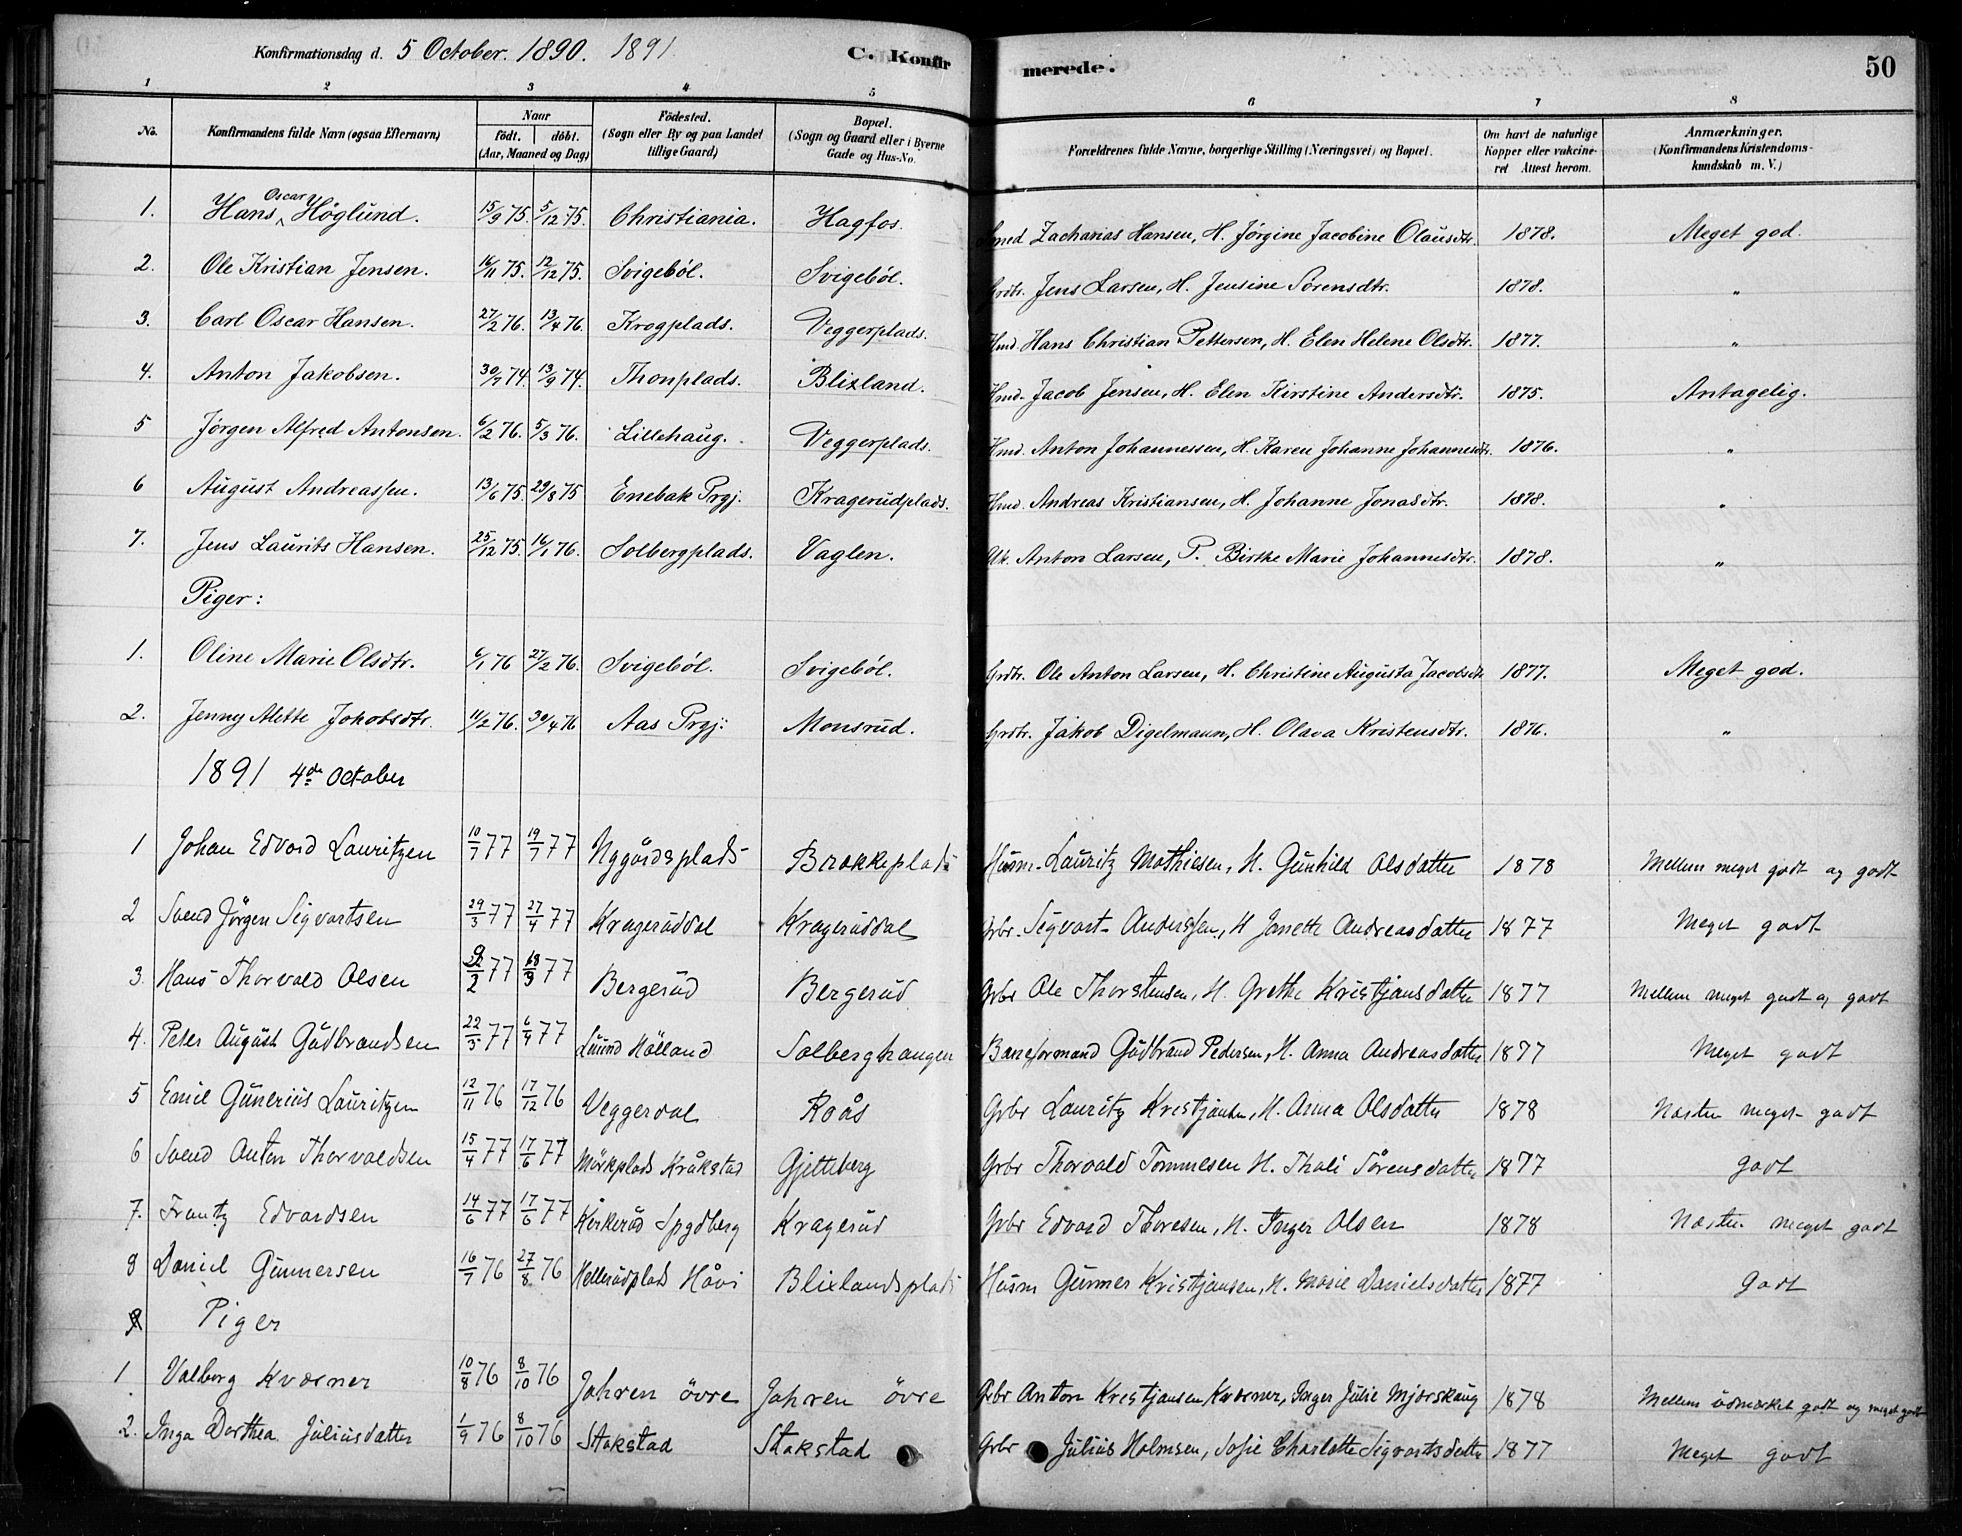 Konfirmationsdag d. 5 October. 1890. 1891 C. Konfirmerede. 50
1 2 3 4 5 6 7 8
No. Konfirmandens fulde Navn (ogsaa Efternavn) Naar födt. döbt. (Aar, Maaned og Dag) Födested. (Sogn eller By og paa Landet tillige Gaard) Bopæl. (Sogn og Gaard eller i Byerne Gade og Hus-No. Forældrenes fulde Navne, borgerlige Stilling (Næringsvei) og Bopæl. Om havt de naturlige Kopper eller vakcineret Attest herom. Anmærkninger. (Konfirmandens Kristendomskundskab m. V.)
1. Hans Oscar Höglund. 15/9 75. 5/12 75. Christiania. Hagfos. Smed Zacharias Hansen, H. Jörgine Jacobine Olausdtr. 1878. Meget god.
2. Ole Kristian Jensen. 16/11 75. 12/12 75. Svigeböl. Svigeböl. Grdbr. Jens Larsen, H. Jensine Sörensdtr. 1878. "
3. Carl Oscar Hansen. 27/2 76. 13/4 76. Krogplads. Veggerplads. Hmd. Hans Christian Pettersen, H. Elen Helene Olsdtr. 1877. "
4. Anton Jakobsen. 30/7 74. 13/9 74. Thonplads. Blixland. Hmd. Jacob Jensen, H. Elen Kirstine Andersdtr. 1875. Antagelig.
5 Jörgen Alfred Antonsen. 6/2 76. 5/3 76. Lillehaug. Veggerplads. Hmd. Anton Johannessen, H. Karen Johanne Johannesdtr. 1876. "
6 August Andreassen. 13/6 75. 29/8 75 Enebak Prgj. Kragerudplads. Hmd. Andreas Kristiansen, H. Johanne Jonasdtr. 1878. "
7. Jens Laurits Hansen. 25/12 75. 16/1 76. Solbergplads. Vaglen. Uk. Anton Larsen, P. Birthe Marie Johannesdtr. 1878. "
Piger:
1. Oline Marie Olsdtr. 6/1 76 27/2 76. Svigeböl. Svigeböl. Grdbr. Ole Anton Larsen, H. Christine Augusta Jacobsdtr 1877. Meget god.
2. Jenny Mette Jakobsdtr. 11/2 76. 30/4 76 Aas Prgj: Monsrud. Grdbr. Jakob Digelmann, H. Olava Kristensdtr. 1876. "
1891 4de October
1 Johan Edvard Lauritzen 10/7 77 19/7 77 Nygårdsplads Brækkeplads Husm. Lauritz Mathiesen, H. Gunhild Olsdatter 1878 Mellem meget godt og godt
2 Svend Jörgen Sigvartsen 29/3 77 27/4 77 Krageruddal Krageruddal Grbr. Sigvart Anderssen, H Janette Andreasdatter 1877 Meget godt
3. Hans Thorvald Olsen 2 77 18/3 77 Bergerud Bergerud Grbr Ole Thorstensen, H. Grethe Kristjansdatter 1877 Mellem meget godt og godt
4. Peter August Gudbrandsen 22/3 77 6/4 77 Lund Hölland Solberghaugen Baneformand Gudbrand Pedersen, H. Anna Andreasdatter 1877 Meget godt
5 Emil Gunerius Lauritzen 12/11 76 17/12 76 Veggerdal Roås Grbr Lauritz Kristjansen, H. Anna Olsdatter 1878 Næsten meget godt
6 Svend Anton Thorvaldsen 15/4 77 17/6 77 Mörkplads Kråkstad Gjetteberg Grbr Thorvald Tommesen H. Thali Sörensdatter 1877 Godt
7. Frantz Edvardsen 14/6 77 17/6 77 Kirkerud Spydberg Kragerud Grbr Edvard Thoresen, H. Inger Olsen 1878 Næsten meget godt
8 Daniel Gunnersen 16/7 76 27/8 76 Hellerudplads Håvi Blixlandsplads Husm Gunner Kristjansen, H. Marie Danielsdatter 1877 Godt
Piger
1 Valborg Kværner 10/8 76 8/10 76 Jahren övre Jahren övre Grbr Anton Kristjansen Kværner, Inger Julie Mjærskaug 1878 Mellem udmærket godt og meget godt
2. Inga Dorthea Juliusdatter 1/9 76 8/10 76 Stakstad Stakstad Grbr Julius Holmsen, Sofie Charlotte Sigvartsdatter 1877 Meget godt